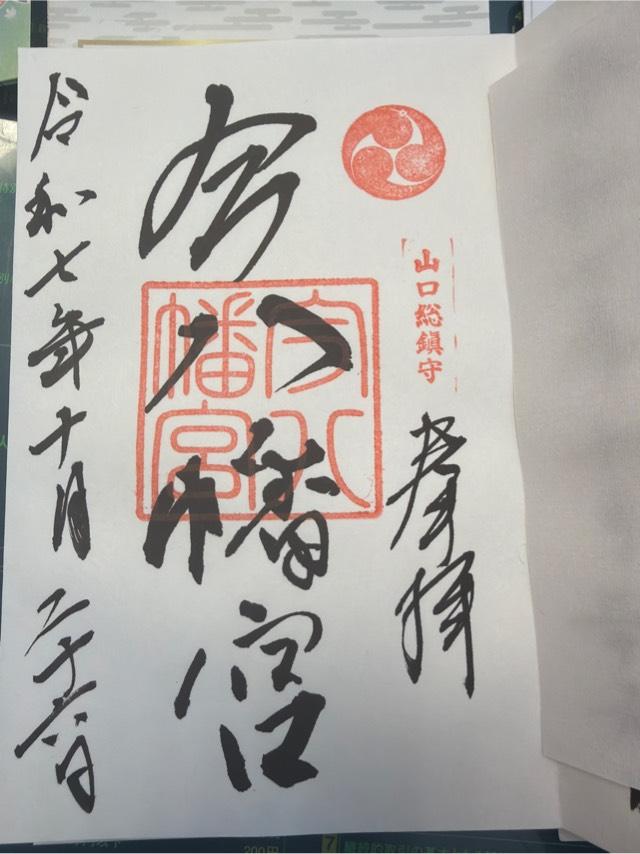 山口総鎮守
奉拝
今八幡宮
今八幡宮
令和七年十月二十六日
200円
7